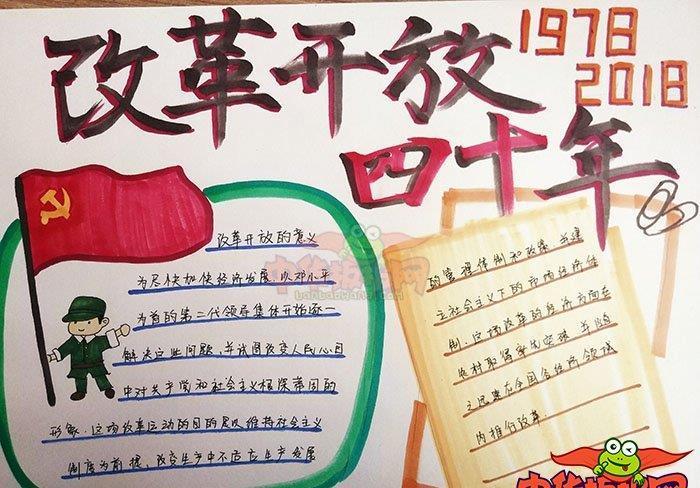 改革开放
1978
2018
四十年
改革开放的意义
为尽快加快经济发展以邓小平
为首的第二代领导集体开始逐一
解决这些问题,并试图改变人民心目
中对关于党和社会主义根深蒂固的
形象.这项改革运动的目的是以维持社会主义
制度为前提,改变生产中不适应生产发展
的管理体制和政策,并建
立社会主义下的市场经济体
制.这场改革的经济方面在
农村取得率先突破,并随
之迅速在全国各经济领域
内推行改革.
中华板报网
banbaowang.com
中华板报网